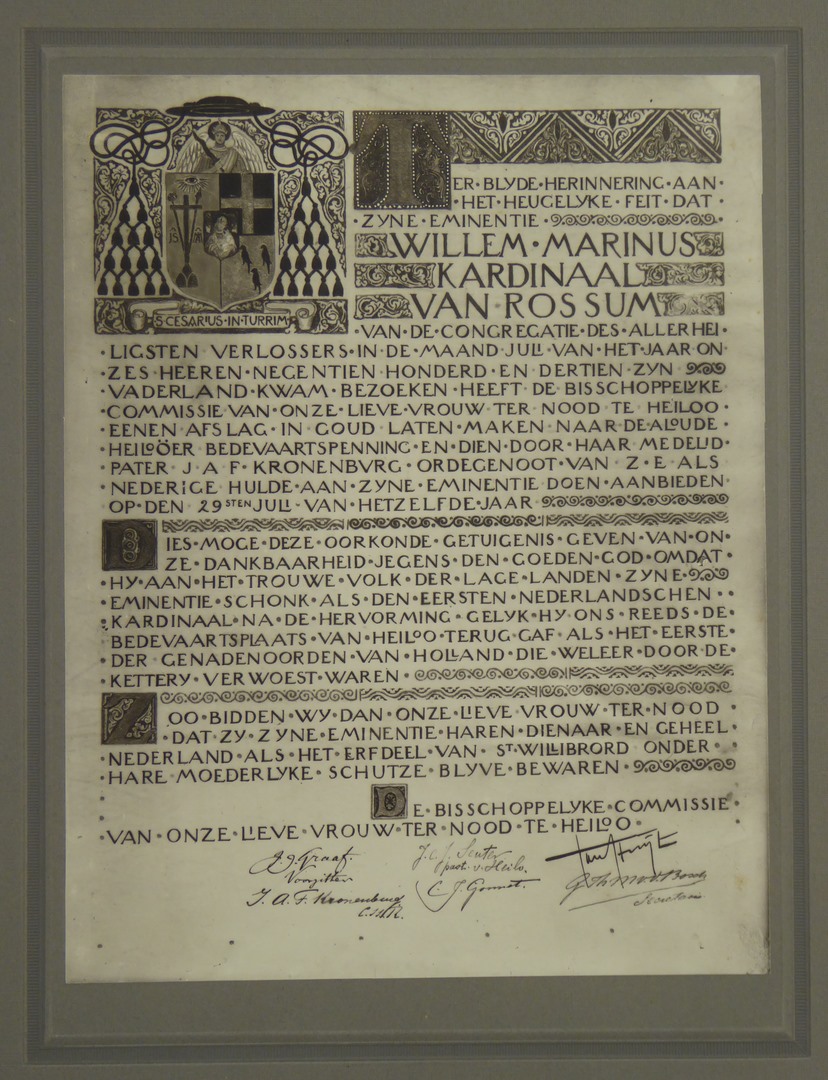 S·CESARIUS·IN·TURRIM
TER·BLYDE·HERINNERING·AAN·
·HET·HEUGELYKE·FEIT·DAT·
·ZYNE·EMINENTIE·
WILLEM·MARINUS
KARDINAAL
VAN·ROSSUM
·VAN·DE·CONGREGATIE·DES·ALLERHEI·
·LIGSTEN·VERLOSSERS·IN·DE·MAAND·JULI·VAN·HET·JAAR·ON·
·ZES·HEEREN·NEGENTIEN·HONDERD·EN·DERTIEN·ZYN
·VADERLAND·KWAM·BEZOEKEN·HEEFT·DE·BISSCHOPPELYKE
·COMMISSIE·VAN·ONZE·LIEVE·VROUW·TER·NOOD·TE·HEILOO·
·EENEN·AFSLAG·IN·GOUD·LATEN·MAKEN·NAAR·DE·ALOUDE·
·HEILOÖER·BEDEVAARTSPENNING·EN·DIEN·DOOR·HAAR·MEDELID·
·PATER·J·A·F·KRONENBVRG·ORDEGENOOT·VAN·Z·E·ALS
·NEDERIGE·HULDE·AAN·ZYNE·EMINENTIE·DOEN·AANBIEDEN·
·OP·DEN·29STEN·JULI·VAN·HETZELFDE·JAAR
DIES·MOGE·DEZE·OORKONDE·GETUIGENIS·GEVEN·VAN·ON·
ZE·DANKBAARHEID·JEGENS·DEN·GOEDEN·GOD·OMDAT·
·HY·AAN·HET·TROUWE·VOLK·DER·LAGE·LANDEN·ZYNE·
·EMINENTIE·SCHONK·ALS·DEN·EERSTEN·NEDERLANDSCHEN··
·KARDINAAL·NA·DE·HERVORMING·GELYK·HY·ONS·REEDS·DE·
·BEDEVAARTSPLAATS·VAN·HEILOO·TERUG·GAF·ALS·HET·EERSTE·
·DER·GENADENOORDEN·VAN·HOLLAND·DIE·WELEER·DOOR·DE·
·KETTERY·VERWOEST·WAREN·
ZOO·BIDDEN·WY·DAN·ONZE·LIEVE·VROUW·TER·NOOD·
·DAT·ZY·ZYNE·EMINENTIE·HAREN·DIENAAR·EN·GEHEEL·
·NEDERLAND·ALS·HET·ERFDEEL·VAN·ST·WILLIBRORD·ONDER·
·HARE·MOEDERLYKE·SCHUTZE·BLYVE·BEWAREN·
DE·BISSCHOPPELYKE·COMMISSIE·
·VAN·ONZE·LIEVE·VROUW·TER·NOOD·TE·HEILOO·
J.J. Graaf.
Voorzitter
J. A. F. Kronenburg
C.ss.R.
past. v. Heilo.
C. J. Gonnet.
Secretaris